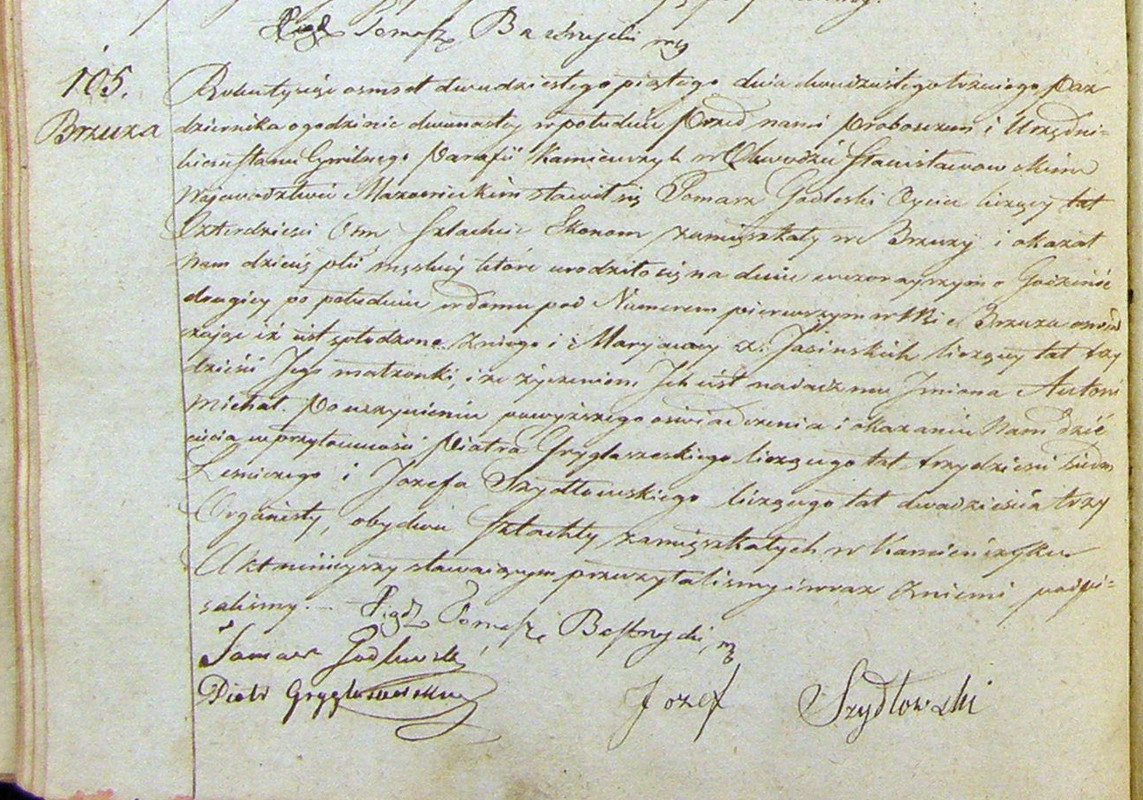 105.
Brzuza
Roku tysiąc osmset dwudziestego piątego dnia dwudziestego trzeciego Paz
dziernika o godzinie dwunastey w południe Przed nami Proboszczem i Urzędni-
kiem Stanu Cywilnego Parafii Kamienczyk w Obwodzie Stanisławowskim
Wojewodztwie Mazowieckim stawił się Tomasz Godleski Życia liczący lat
Czterdziesci Osm Szlachcic Ekonom zamięszkały w Brzuzy i okazał
Nam dziecię płci męskiey ktore urodziło się na dniu wczorayszym o Godzinie
drugiey po południu w domu pod Numerem pierwszym w Wsi Brzuza oswiad
czaiąc iż iest spłodzone z niego i Maryanny z Jasinskich liczący lat trzy
dzieści Jego małzonki, i że życzeniem Jch iest nadac mu Jmiona Antoni
Michał. Po uczynieniu powyższego oswiadczenia i okazaniu Nam dzie
cięcia w przytomności Piotra Gryglaszeskiego liczącego lat trzydziesci siedm
Lesniczego i Jozefa Szydłowskiego liczącego lat dwadziescia trzy
Organisty, obydwu Szlachty zamięszkałych w Kamieńczyku
Akt ninieyszy stawaiącym przeczytalismy i wraz z niemi podpi-
salismy.
Tomasz Godlewski
Piotr
Jozef Szydłowski